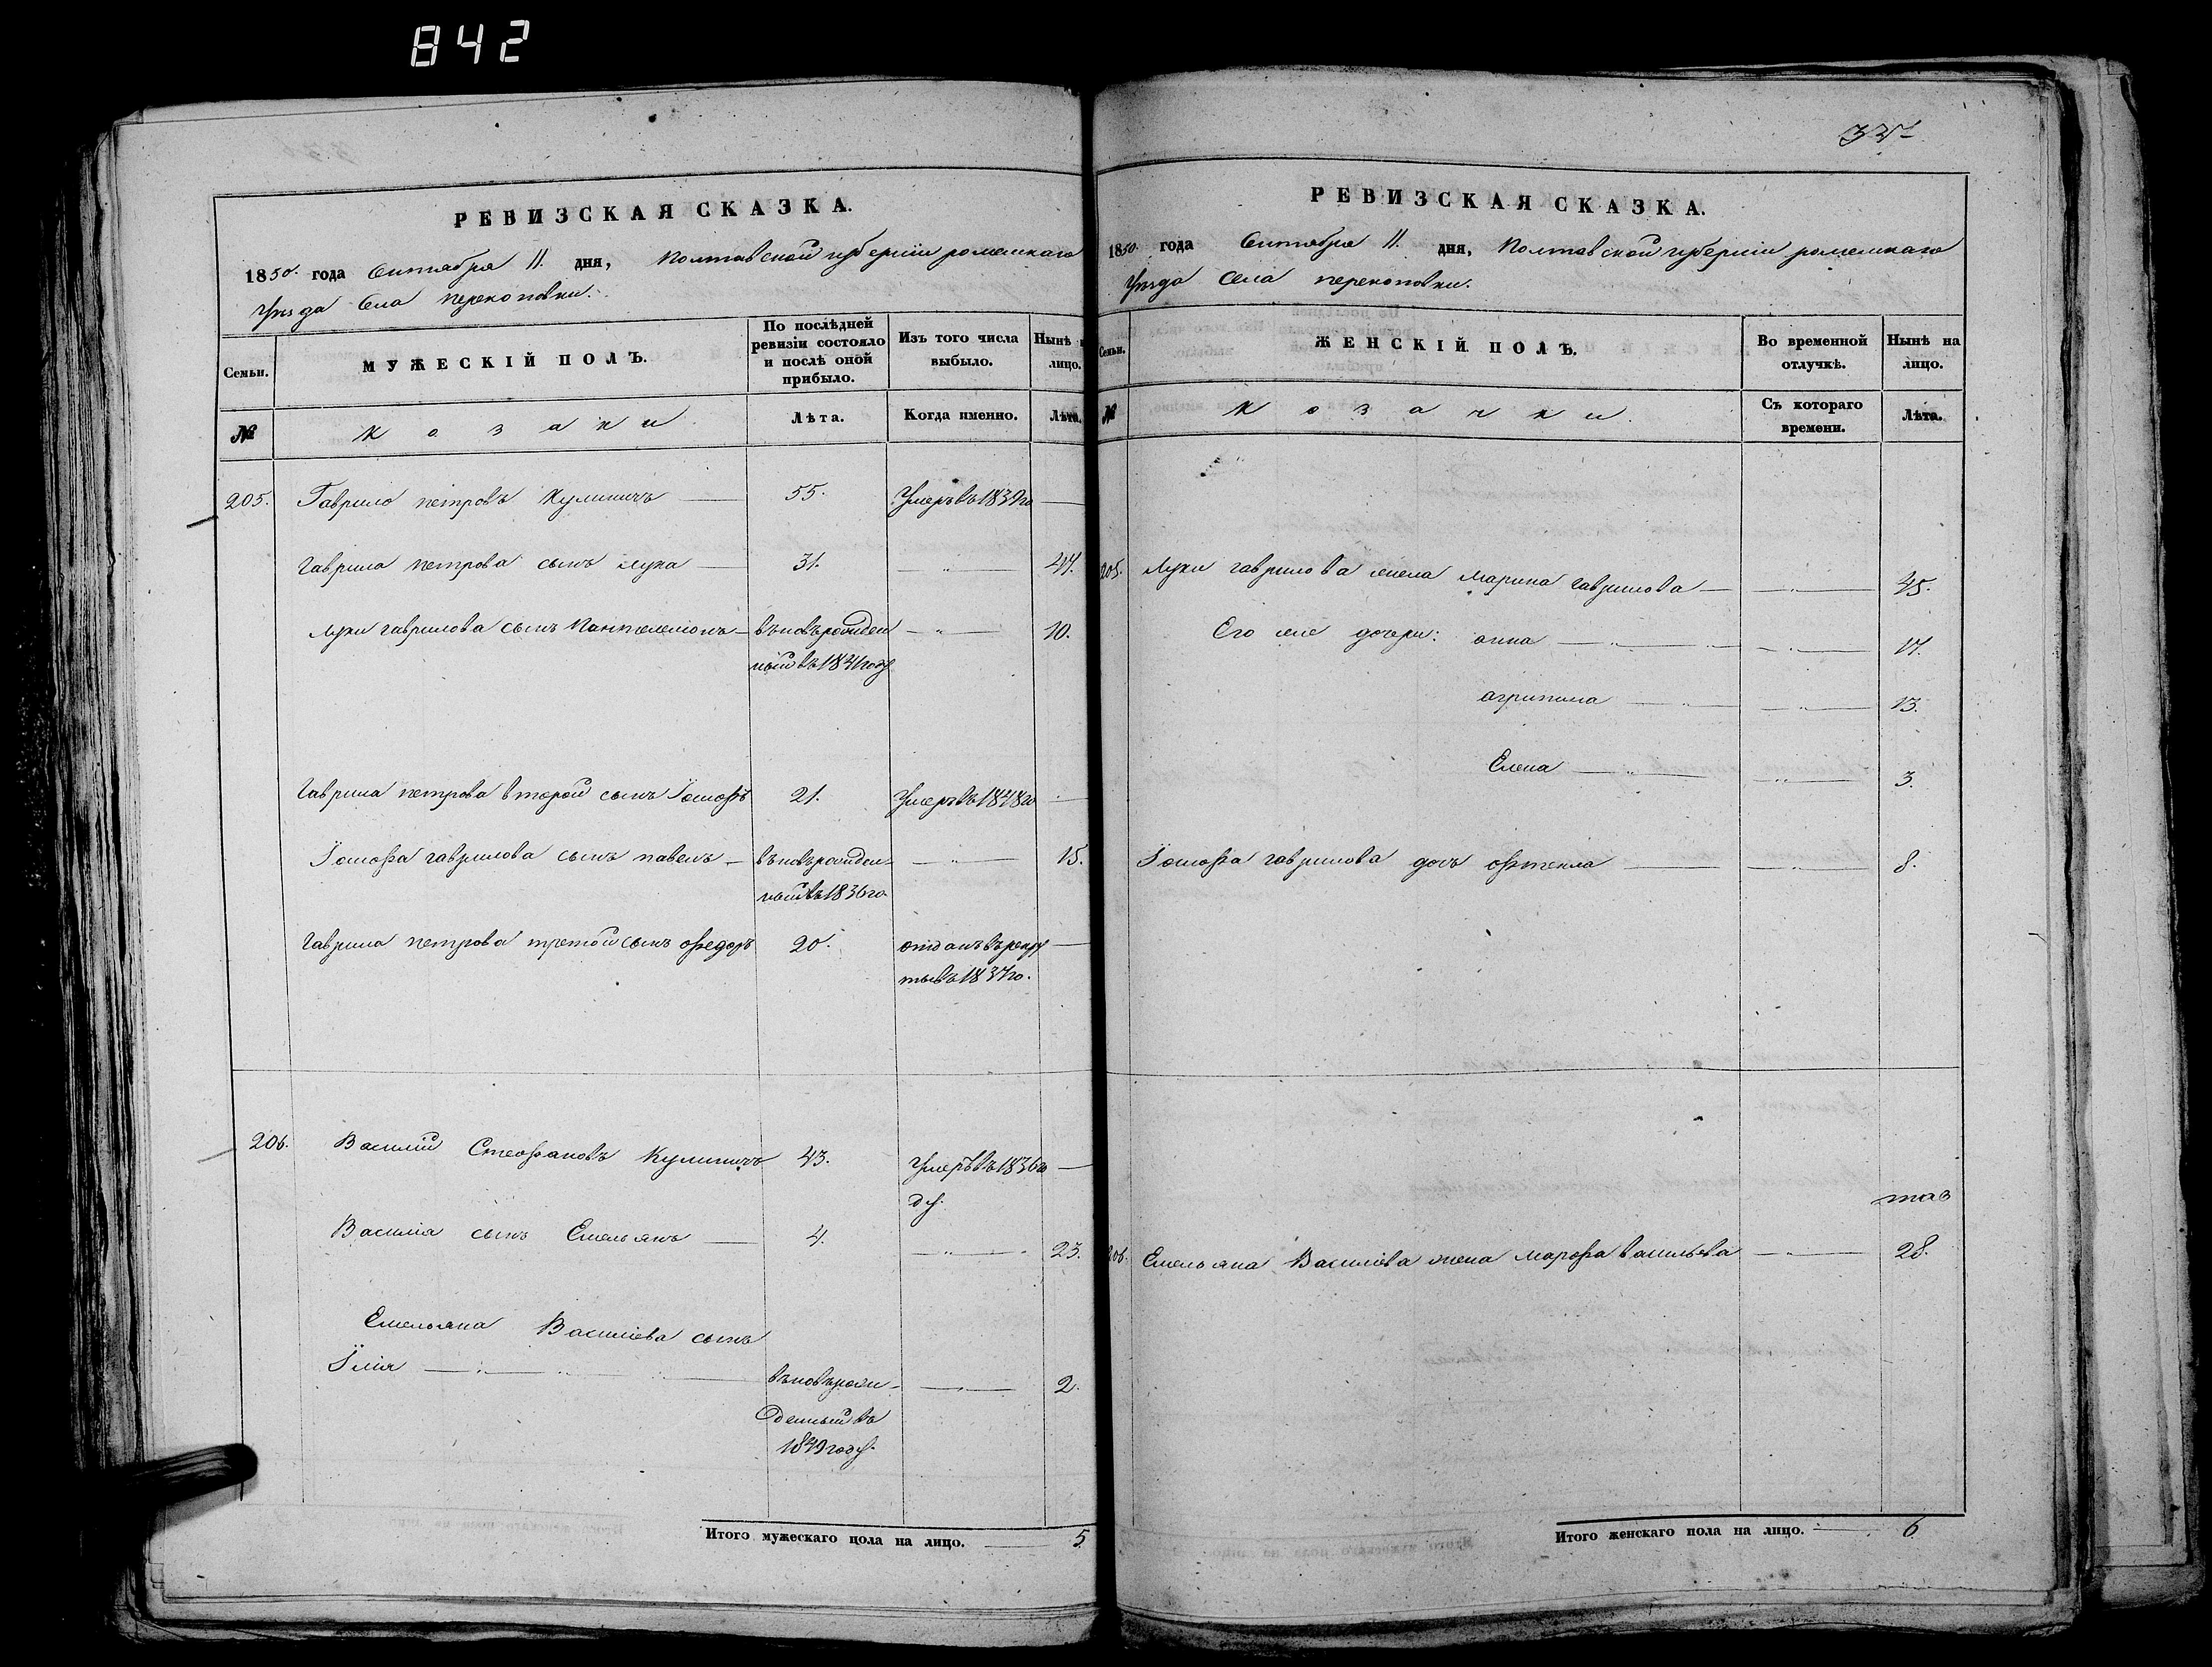 842
РЕВИЗСКАЯ СКАЗКА.
1850. года Сентября 11. дня, Полтавской губерніи роменскаго
Уѣзда Села перекоповки.
Семьи.
МУЖЕСКІЙ ПОЛЪ.
По послѣдней ревизіи состояло и послѣ оной прибыло.
Изъ того числа выбыло.
Нынѣ
лицо.
№
Козаки
Лѣта.
Когда именно.
Лѣта.
205. Гаврило петровъ Кулиничъ 55. Умеръ въ 1839 го
гаврила петрова сынъ лука 31. 44.
луки гаврилова сынъ Пантелеіонъ въновърожден 10.
ный въ 1841 году
гаврила петрова второй сынъ Іосифъ 21. Умеръ въ 1848 го
Іосифа гаврилова сынъ павелъ въновърожден 15.
ный въ 1836 го
гаврила петрова третой сынъ ѳедоръ 20. отданъ въ рекру
ты въ 1837 го.
206. Василій Стефановъ Кулиничъ 43. Умеръ въ 1836 го
ду.
Василія сынъ Емельянъ 4. 23.
Емельяна Василіева сынъ
Ілія въновърож 2.
денный въ
1849 году.
Итого мужескаго пола на лицо. 5.
РЕВИЗСКАЯ СКАЗКА.
1850. года Сентября 11. дня, Полтавской губерніи роменскаго
Уѣзда Села перекоповки.
Семьи.
ЖЕНСКІЙ ПОЛЪ.
Во временной отлучкѣ.
Нынѣ на лицо.
№
Козачки.
Съ котораго времени.
Лѣта.
205. Луки гаврилова жена марина гаврилова 45.
Его же дочери: анна 17.
агрипина 13.
Елена 3.
Іосифа гаврилова дочь 8.
206. Емельяна Василіева жена марфа васильева 28.
Итого женскаго пола на лицо. 6